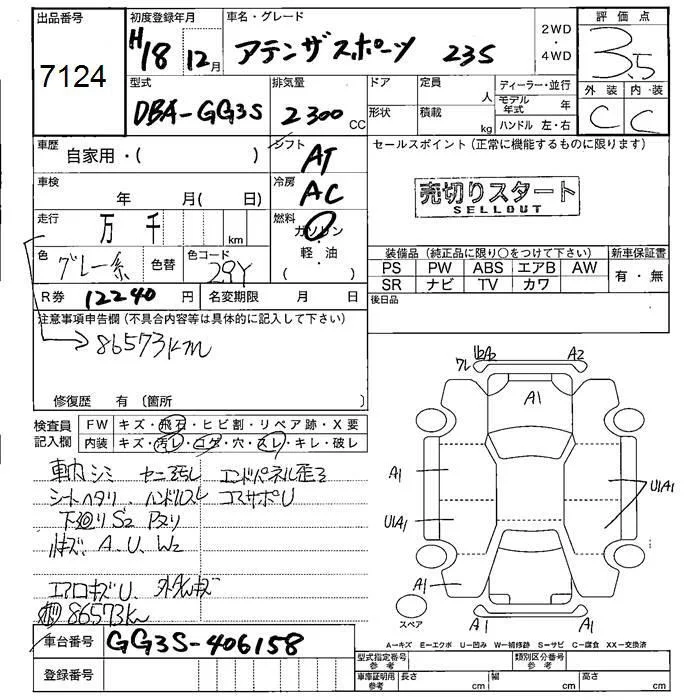 出品番号
7124
初度登録年月
H18 12月
車名・グレード
アテンザスポーツ 23S
2WD
・
4WD
評価点
3.5
外装 内装
C C
型式
DBA-GG3S
排気量
2300 CC
ドア
形状
定員
人
積載
kg
ディーラー・並行
モデル年式 年
ハンドル 左・右
車歴
自家用・( )
シフト
AT
セールスポイント (正常に機能するものに限ります)
売切りスタート
SELLOUT
車検
年 月( 日)
冷房
AC
走行
万 千 km
燃料
ガソリン
・
軽・油
( )
色
グレー系
色替
色コード
29Y
装備品 (純正品に限り○をつけて下さい)
PS PW ABS エアB AW
SR ナビ TV カワ
新車保証書
有・無
R券 12240 円
名変期限 月 日
後日品
注意事項申告欄 (不具合内容等は具体的に記入して下さい)
→86573km
修復歴 有 (箇所
検査員記入欄
FW キズ・飛石・ヒビ割・リペア跡・X要
内装 キズ・汚レ・コゲ・穴・スレ・キレ・破レ
シミ エンドパネル歪ミ
シートヘタリ ハンドルスレ コアサポU
下廻りS2 Pヌリ
キズ A.U.W2
エアロキズU
86573km
A2
A1
A1
U1A1
U1A1
A1
A1
A1
スペア
A-キズ E-エクボ U-凹み W-補修跡 S-サビ C-腐食 XX-交換済
車台番号
GG3S-406158
登録番号
型式指定番号
参考
類別区分番号
参考
車庫証明用
参考
長さ cm
幅 cm
高さ cm